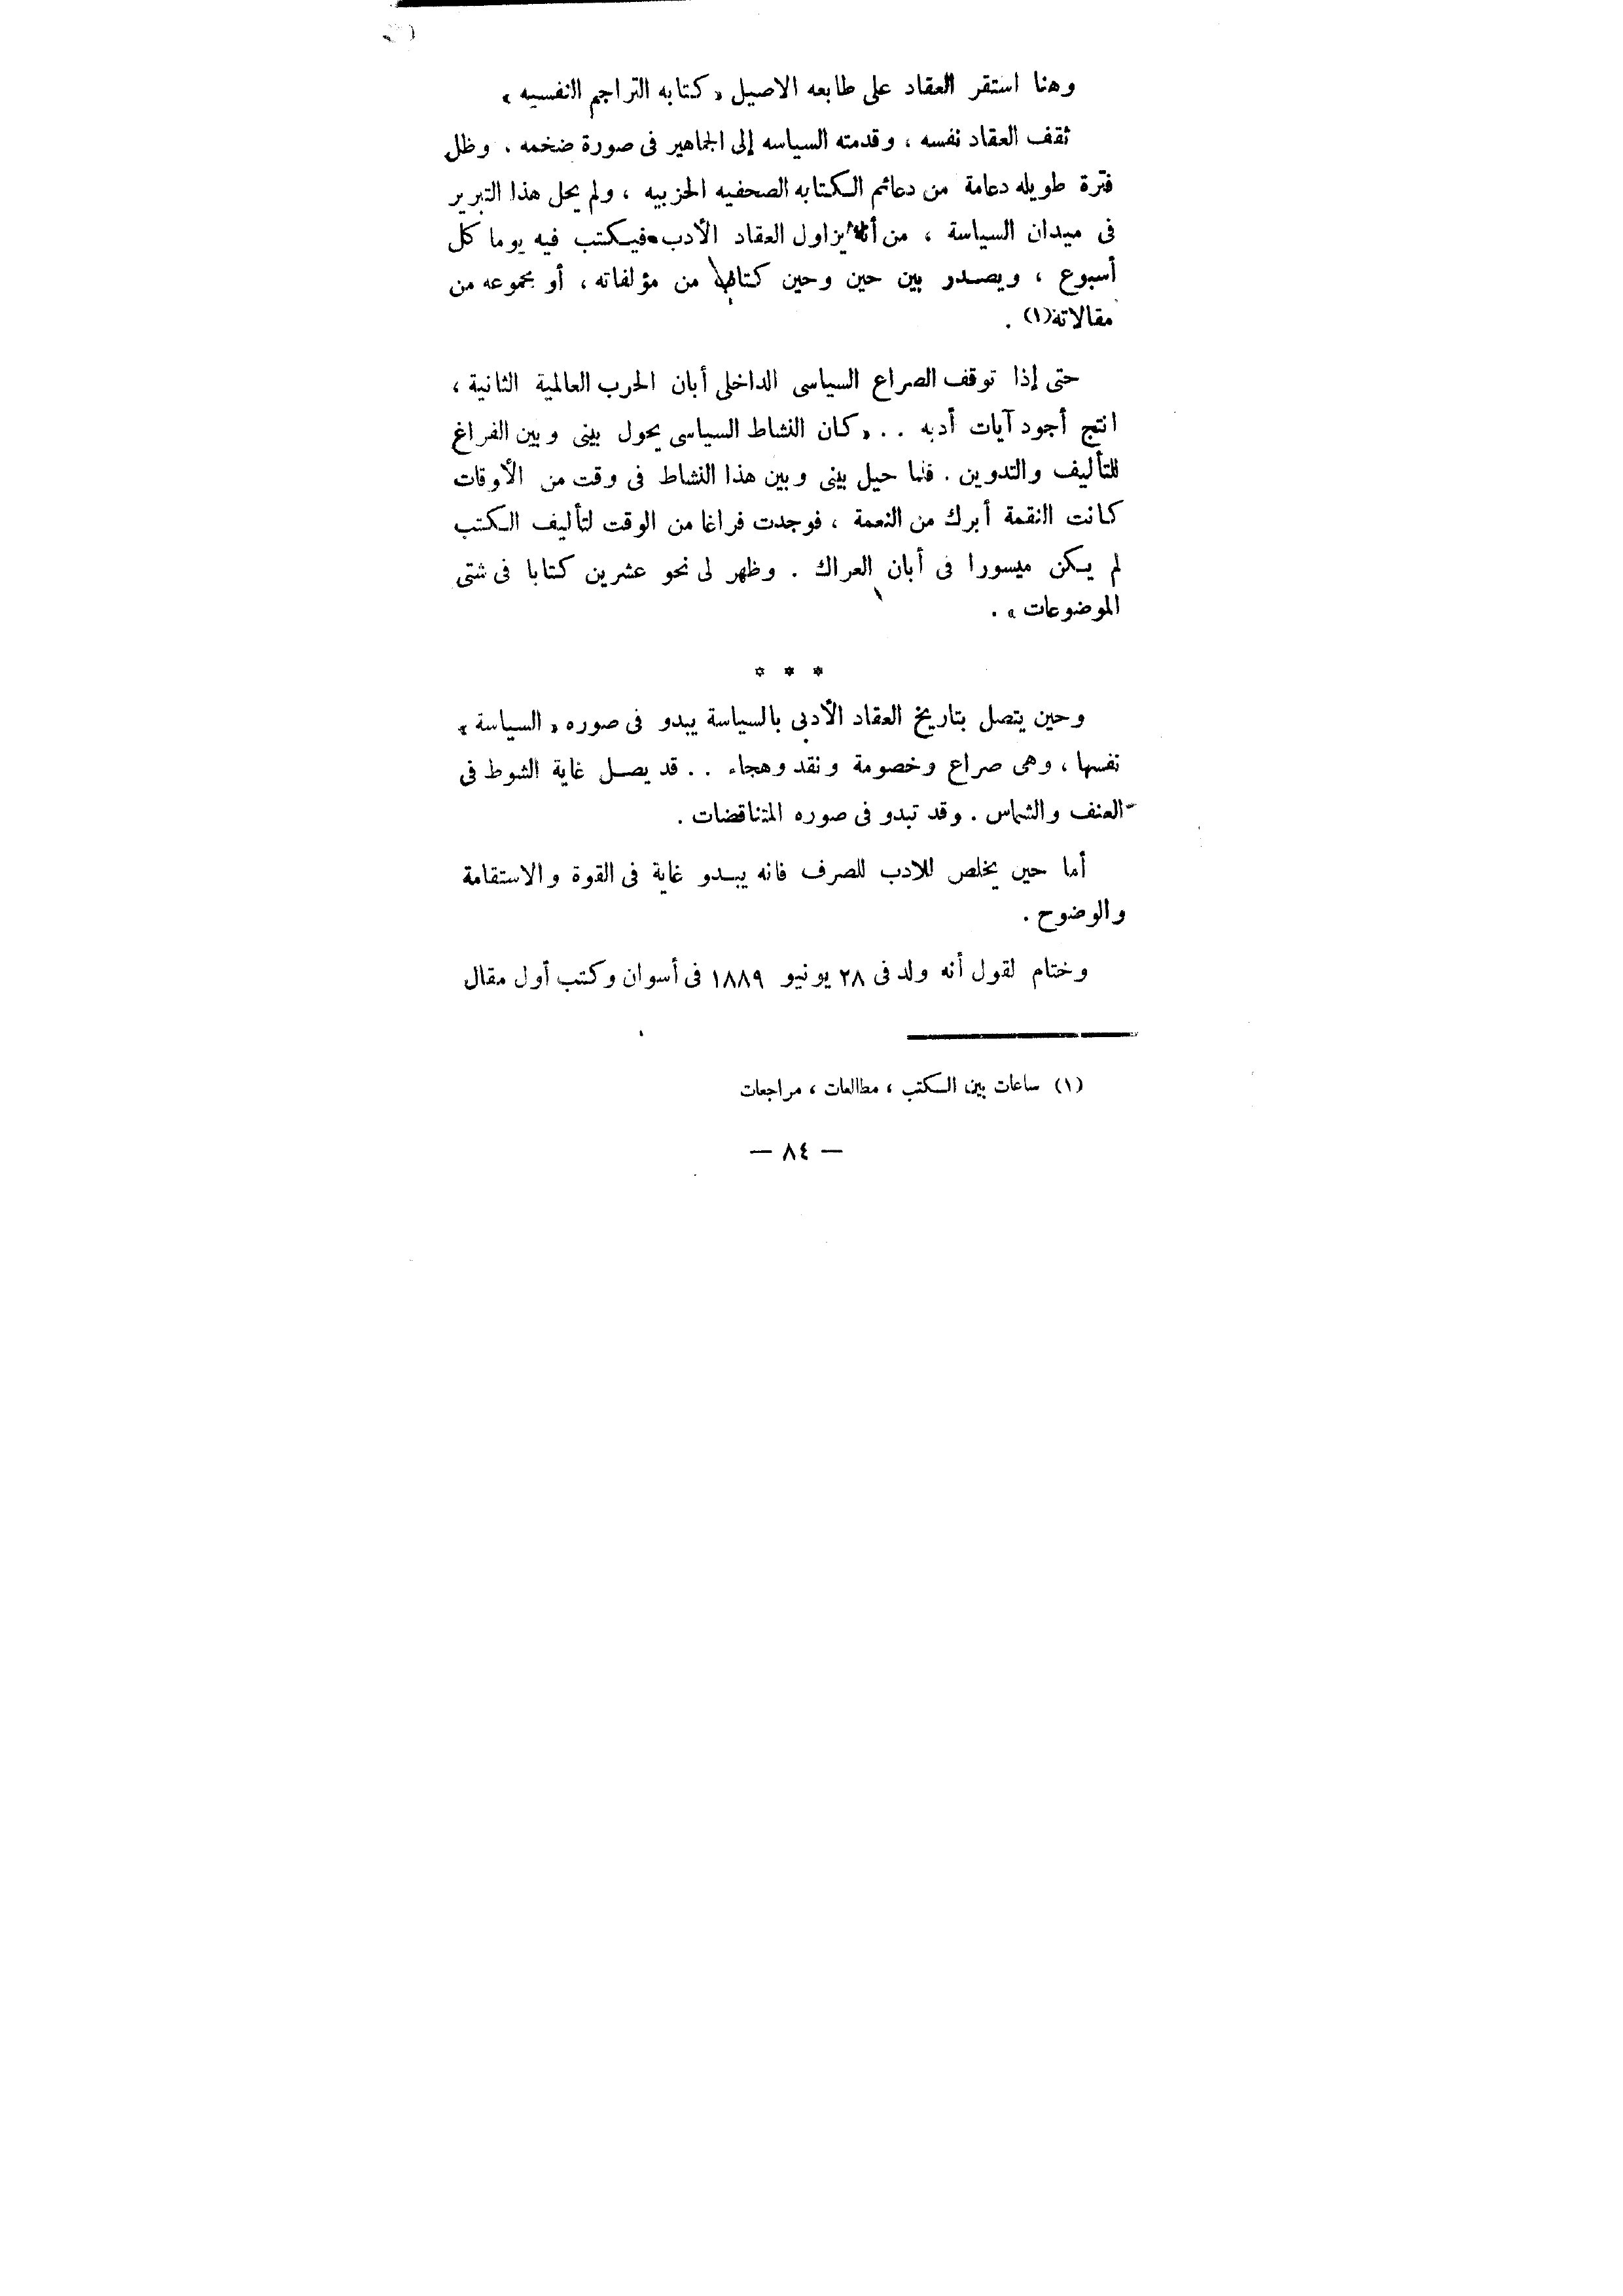 وهنا استقر العقاد على طابعه الاصيل «كتابه التراجم النفسيه»
ثقف العقاد نفسه ، وقدمته السياسه إلى الجماهير فى صورة ضخمه . وظل
فترة طويله دعامة من دعائم الكتابه الصحفيه الحزبيه ، ولم يحل هذا التبرير
فى ميدان السياسة ، من أن يزاول العقاد الأدب فيكتب فيه يوما كل
أسبوع ، ويصدر بين حين وحين كتابا من مؤلفاته ، أو مجموعه من
مقالاتة(١) .
حتى إذا توقف الصراع السياسى الداخلى أبان الحرب العالمية الثانية ،
انتج أجود آيات أدبه . . «كان النشاط السياسى يحول بينى وبين الفراغ
للتأليف والتدوين . فلما حيل بينى وبين هذا النشاط فى وقت من الأوقات
كانت النقمة أبرك من النعمة ، فوجدت فراغا من الوقت لتأليف الكتب
لم يكن ميسورا فى أبان العراك . وظهر لى نحو عشرين كتابا فى شتى
الموضوعات» .
* * *
وحين يتصل بتاريخ العقاد الأدبى بالسياسة يبدو فى صوره «السياسة»
نفسها ، وهى صراع وخصومة ونقد وهجاء . . قد يصل غاية الشوط فى
العنف والشماس . وقد تبدو فى صوره المتناقضات .
أما حين يخلص للادب الصرف فانه يبدو غاية فى القوة والاستقامة
والوضوح .
وختام لقول أنه ولد فى ٢٨ يونيو ١٨٨٩ فى أسوان وكتب أول مقال
(١) ساعات بين الكتب ، مطالعات ، مراجعات
— ٨٤ —